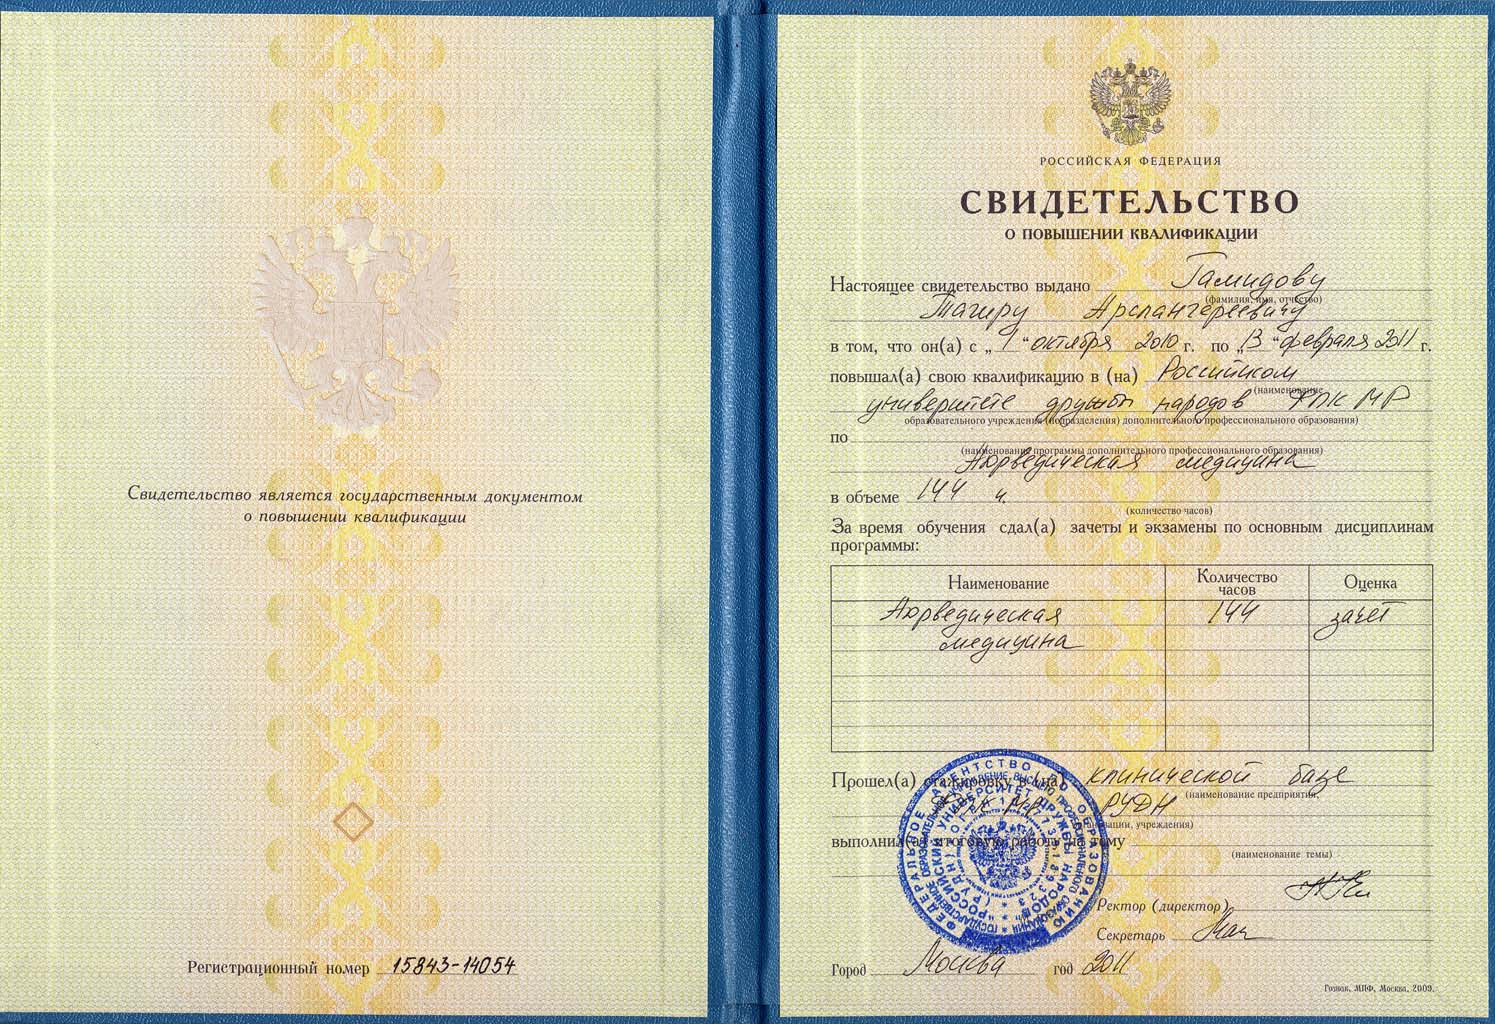 Свидетельство является государственным документом
о повышении квалификации
Регистрационный номер 15843-14054
РОССИЙСКАЯ ФЕДЕРАЦИЯ
СВИДЕТЕЛЬСТВО
О ПОВЫШЕНИИ КВАЛИФИКАЦИИ
Настоящее свидетельство выдано Гамидову
(фамилия, имя, отчество)
Тагиру Арслангереевичу
в том, что он(а) с „1“ октября 2010 г. по „13“ февраля 2011 г.
повышал(а) свою квалификацию в (на) Российском
(наименование
университете дружбы народов ФПК МР
образовательного учреждения (подразделения) дополнительного профессионального образования)
по
(наименование программы дополнительного профессионального образования)
Аюрведическая медицина
в объеме 144 ч.
(количество часов)
За время обучения сдал(а) зачеты и экзамены по основным дисциплинам
программы:
Наименование Количество часов Оценка
Аюрведическая 144 зачет
медицина
Прошел(а) стажировку в (на) клинической базе
(наименование предприятия,
ФПК МР РУДН
организации, учреждения)
выполнил(а) итоговую работу на тему
(наименование темы)
Ректор (директор)
Секретарь
Город Москва год 2011
Гознак, МПФ, Москва, 2009.
ФЕДЕРАЛЬНОЕ АГЕНТСТВО ПО ОБРАЗОВАНИЮ
"РОССИЙСКИЙ УНИВЕРСИТЕТ ДРУЖБЫ НАРОДОВ"
(РУДН)